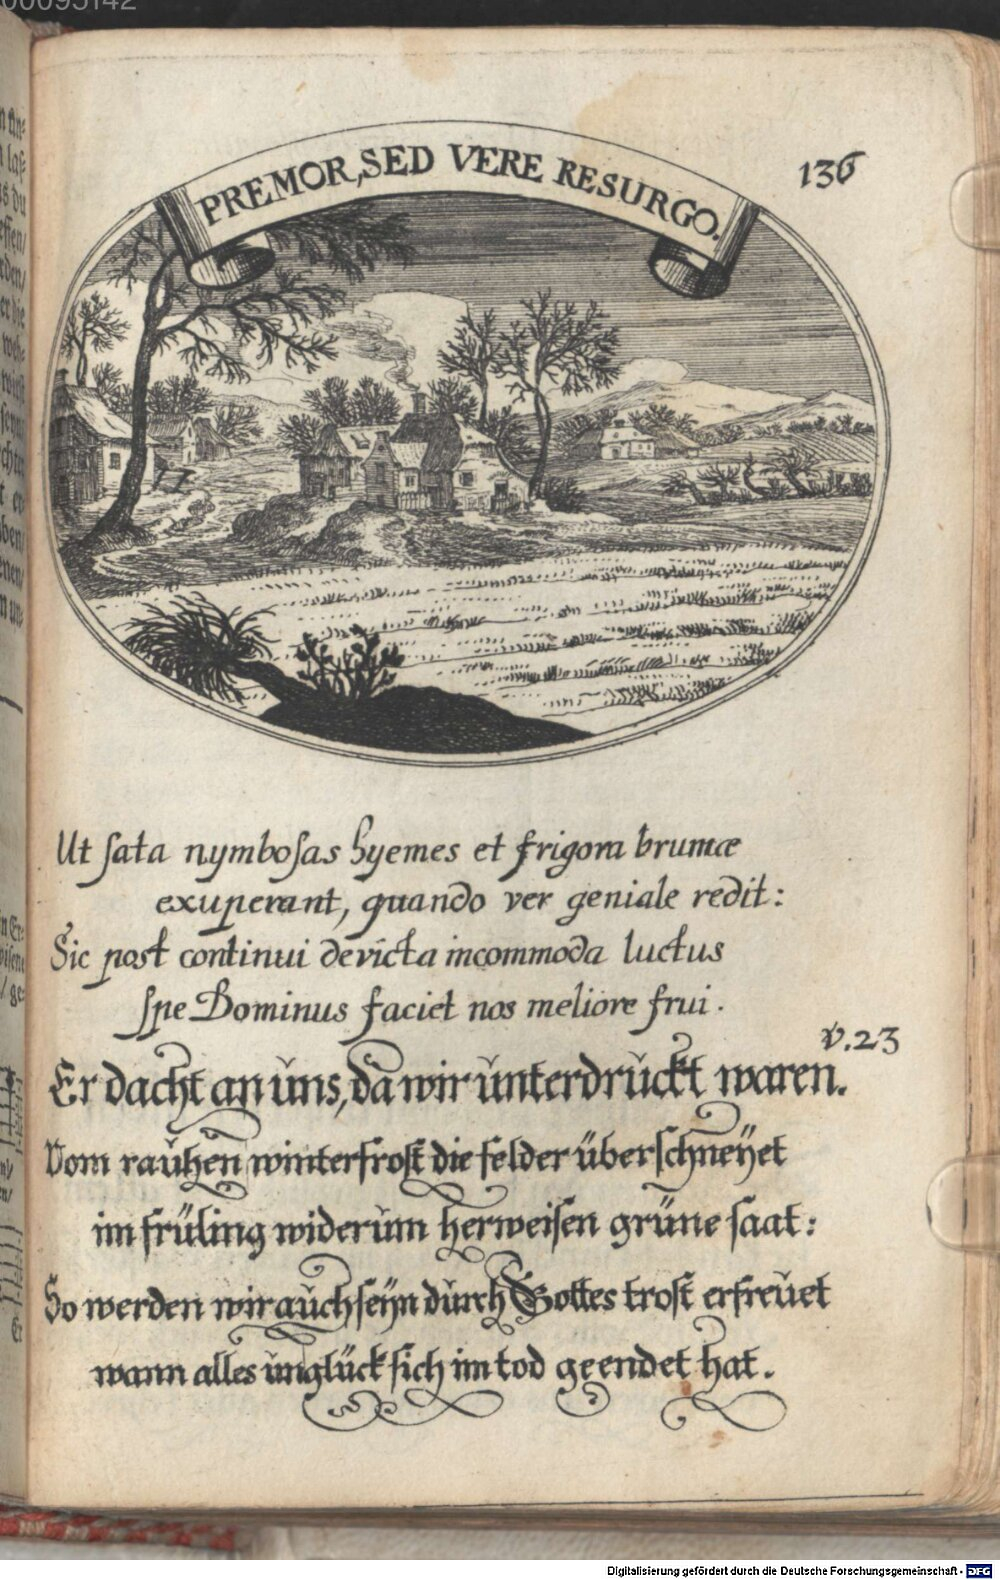 00095142
PREMOR, SED VERE RESURGO.
136
Ut ſata nymboſas hyemes et frigora brumæ
exuperant, quando ver geniale redit:
Sic post continui devicta incommoda luctus
ſpe Dominus faciet nos meliore frui.
v.23
Er dacht an ŭns, da wir ŭnterdrŭckt waren.
Vom raŭhen winterfroſt die felder überſchneÿet
im früling widerŭm herweiſen grüne ſaat:
So werden wir aŭch ſeÿn dŭrch Gottes troſt erfreŭet
wann alles ŭnglück ſich im tod geendet hat.
Digitalisierung gefördert durch die Deutsche Forschungsgemeinschaft - DFG